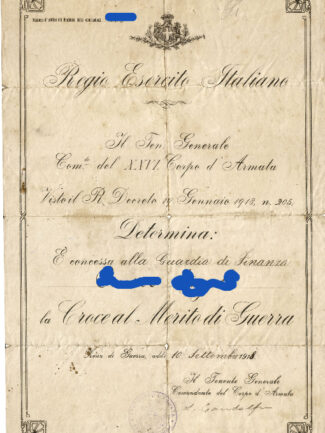 Regio Esercito Italiano
Il Ten. Generale
Com.te del XXVI Corpo d'Armata
Visto il R. Decreto 19 Gennaio 1918, n. 205,
Determina:
È concessa alla Guardia di Finanza
la Croce al Merito di Guerra
Zona di Guerra, addì 10 Settembre 1918
Il Tenente Generale
Comandante del Corpo d'Armata